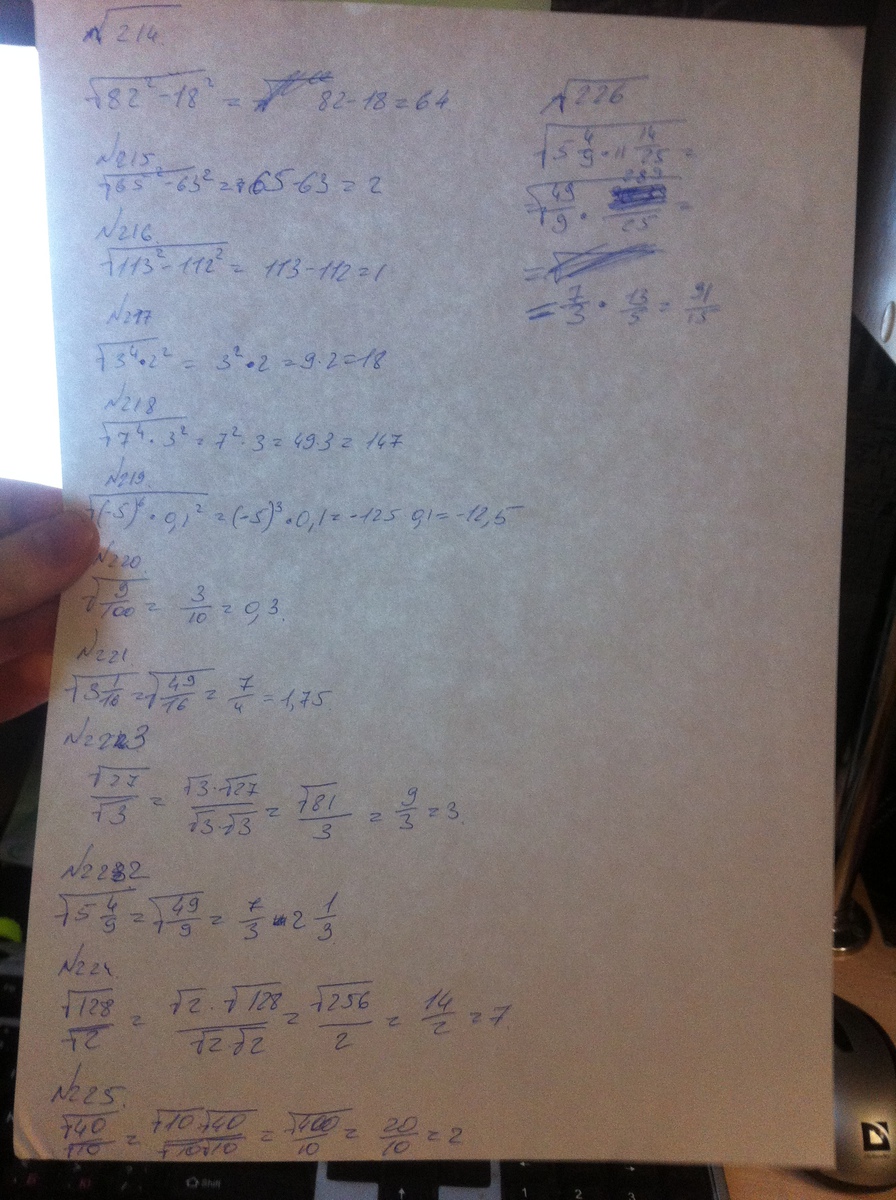 √214
√82² - 18² = 82-18=64
N215
√65² - 63² = 65-63 = 2
N216
√113² - 112² = 113-112=1
N217
√3⁴·2² = 3²·2 = 9·2=18
N218
√7⁴·3² = 7²·3 = 49·3 = 147
N219
√(-5)⁶·0,1² = (-5)³·0,1 = -125 0,1 = -12,5
N220
√9/100 = 3/10 = 0,3
N221
√3 1/16 = √49/16 = 7/4 = 1,75
N223
√27/√3 = √3·√27/√3·√3 = √81/3 = 9/3 = 3
N222
√5 4/9 = √49/9 = 7/3 = 2 1/3
N224
√128/√2 = √2·√128/√2·√2 = √256/2 = 14/2 = 7
N225
√40/√10 = √10·√40/√10·√10 = √400/10 = 20/10 = 2
√226
√5 4/9 · 11 14/25 =
= √49/9 · 289/25 =
=
= 7/3 · 13/5 = 91/15
Shift
1 2 3